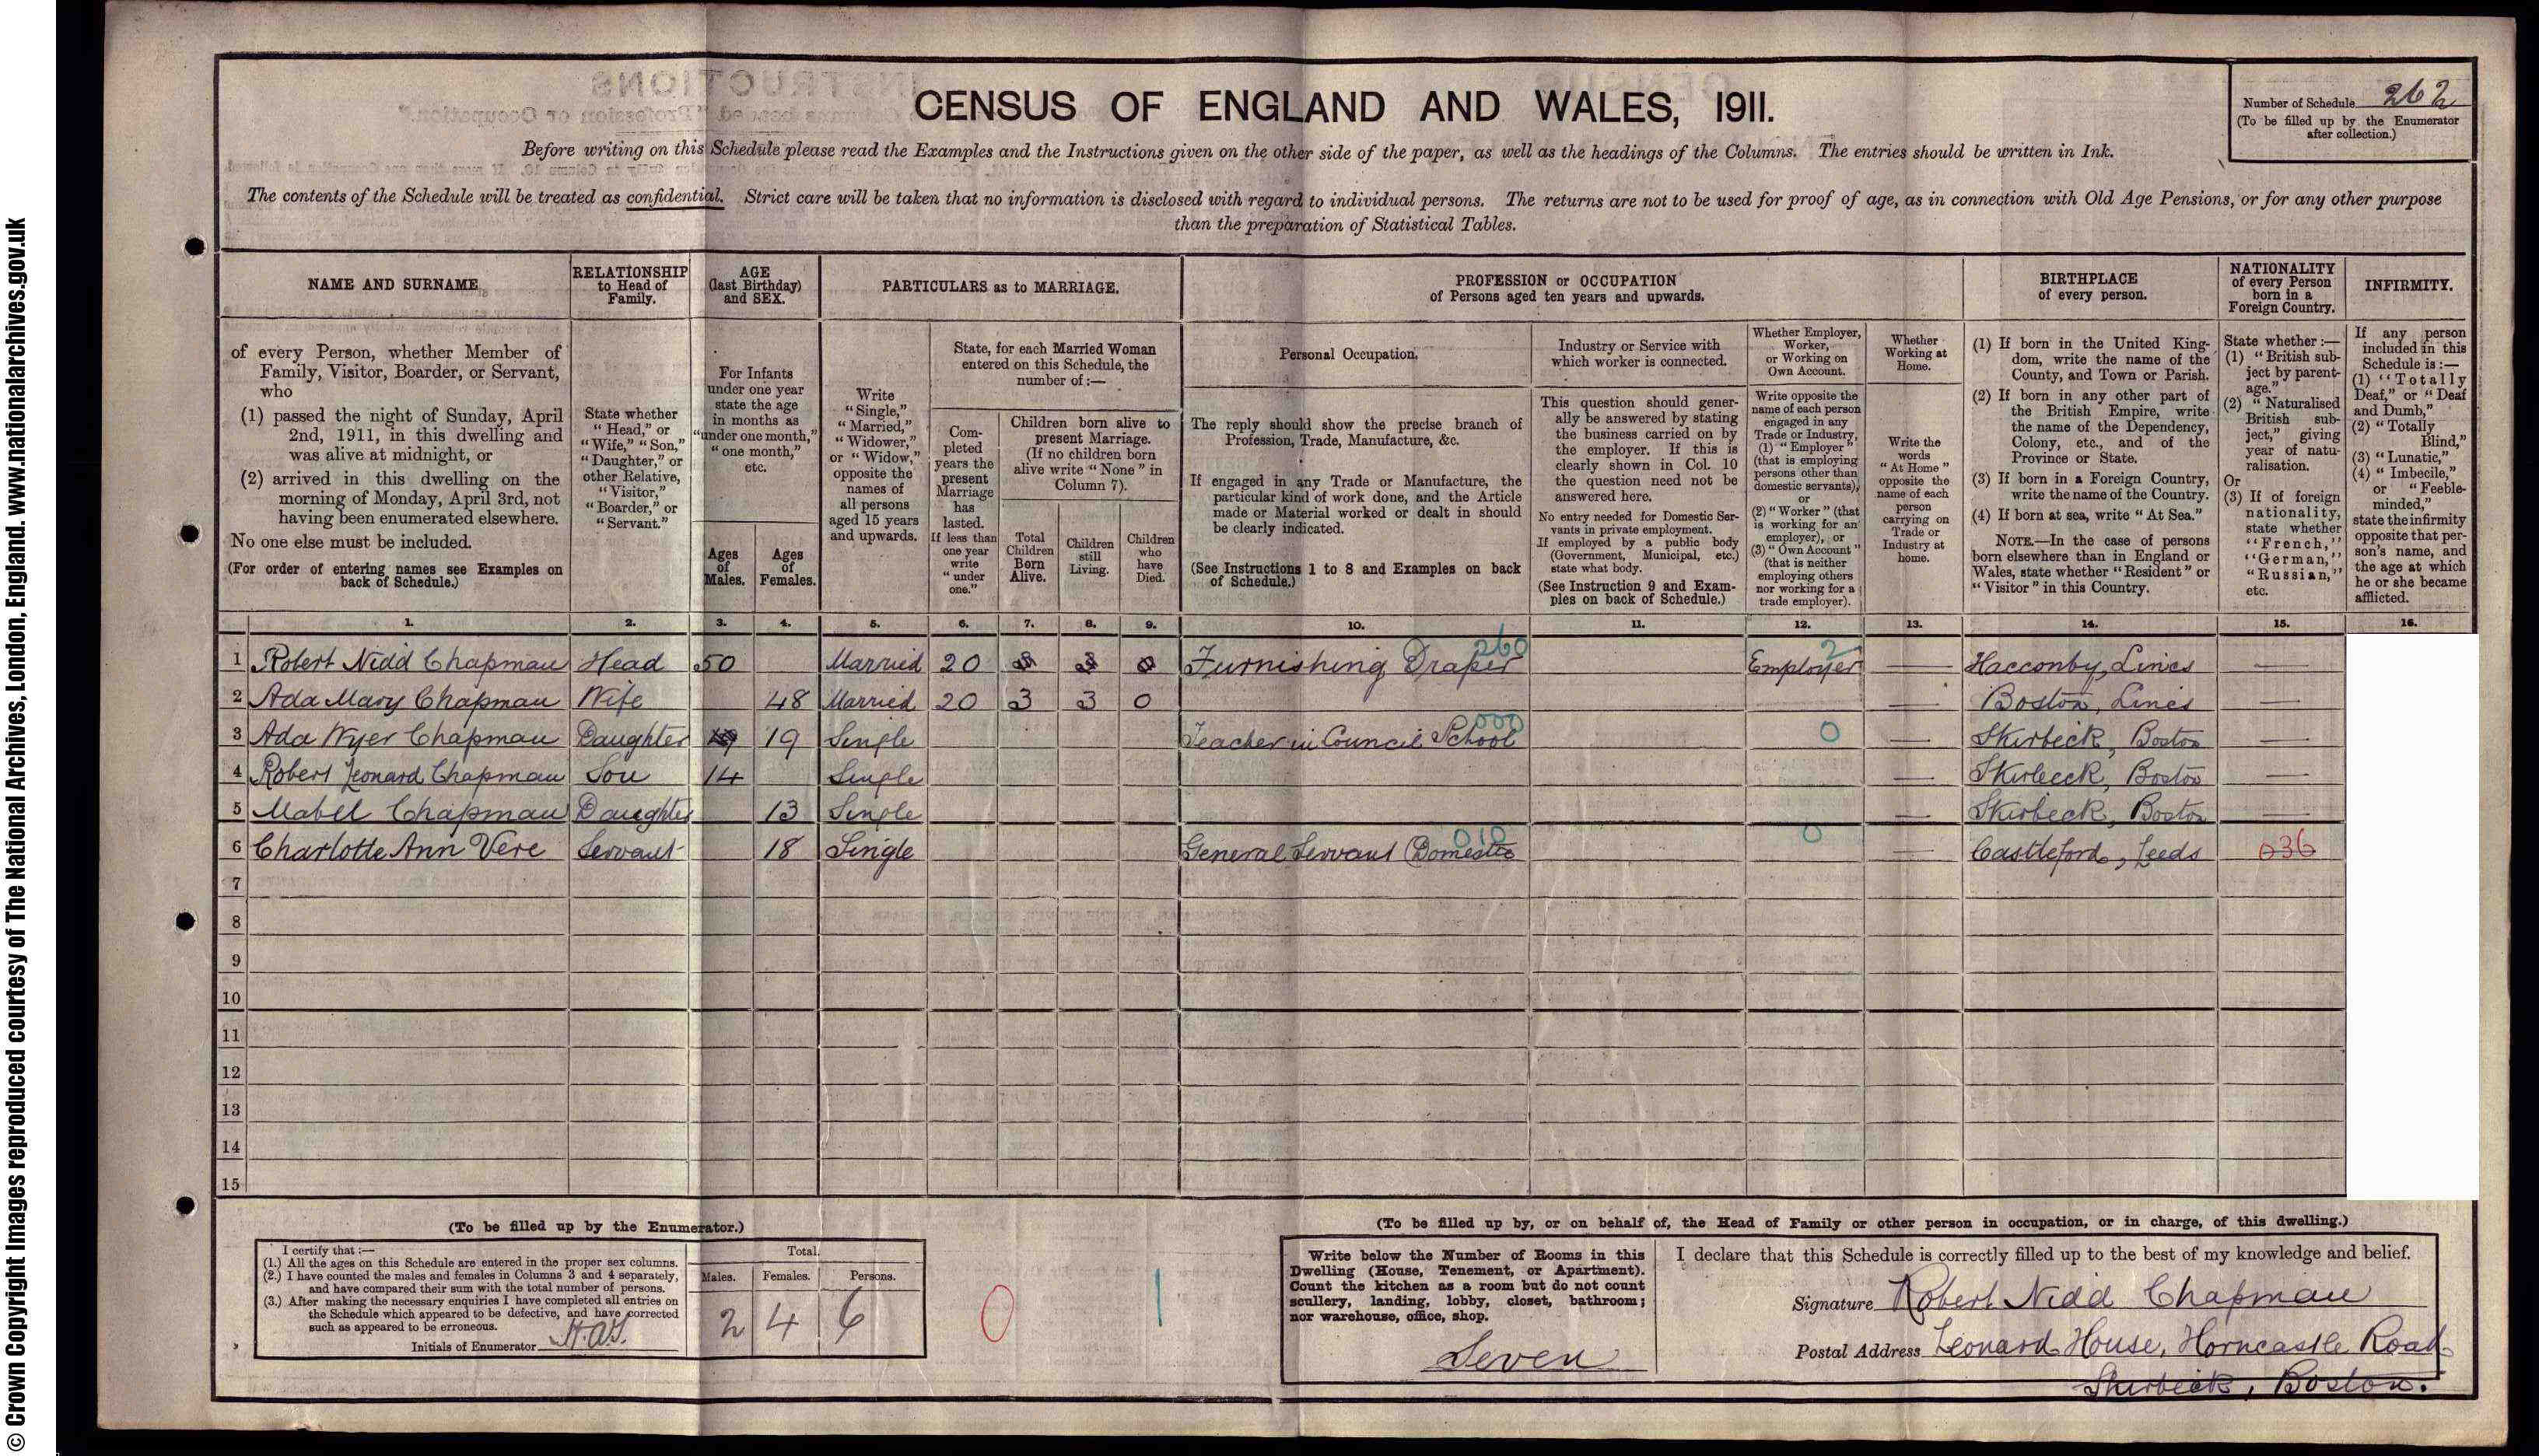 © Crown Copyright Images reproduced courtesy of The National Archives, London, England. www.nationalarchives.gov.uk
CENSUS OF ENGLAND AND WALES, 1911.
Number of Schedule 262
(To be filled up by the Enumerator
after collection.)
Before writing on this Schedule please read the Examples and the Instructions given on the other side of the paper, as well as the headings of the Columns. The entries should be written in Ink.
The contents of the Schedule will be treated as confidential. Strict care will be taken that no information is disclosed with regard to individual persons. The returns are not to be used for proof of age, as in connection with Old Age Pensions, or for any other purpose
than the preparation of Statistical Tables.
NAME AND SURNAME
RELATIONSHIP
to Head of
Family.
AGE
(last Birthday)
and SEX.
PARTICULARS as to MARRIAGE.
PROFESSION or OCCUPATION
of Persons aged ten years and upwards.
BIRTHPLACE
of every person.
NATIONALITY
of every Person
born in a
Foreign Country.
INFIRMITY.
of every Person, whether Member of
Family, Visitor, Boarder, or Servant,
who
(1) passed the night of Sunday, April
2nd, 1911, in this dwelling and
was alive at midnight, or
(2) arrived in this dwelling on the
morning of Monday, April 3rd, not
having been enumerated elsewhere.
No one else must be included.
(For order of entering names see Examples on
back of Schedule.)
State whether
"Head," or
"Wife," "Son,"
"Daughter," or
other Relative,
"Visitor,"
"Boarder," or
"Servant."
For Infants
under one year
state the age
in months as
"under one month,"
"one month,"
etc.
Ages
of
Males.
Ages
of
Females.
Write
"Single,"
"Married,"
"Widower,"
or "Widow,"
opposite the
names of
all persons
aged 15 years
and upwards.
State, for each Married Woman
entered on this Schedule, the
number of :—
Com-
pleted
years the
present
Marriage
has
lasted.
If less than
one year
write
"under
one."
Children born alive to
present Marriage.
(If no children born
alive write "None" in
Column 7).
Total
Children
Born
Alive.
Children
still
Living.
Children
who
have
Died.
Personal Occupation.
The reply should show the precise branch of
Profession, Trade, Manufacture, &c.
If engaged in any Trade or Manufacture, the
particular kind of work done, and the Article
made or Material worked or dealt in should
be clearly indicated.
(See Instructions 1 to 8 and Examples on back
of Schedule.)
Industry or Service with
which worker is connected.
This question should gener-
ally be answered by stating
the business carried on by
the employer. If this is
clearly shown in Col. 10
the question need not be
answered here.
No entry needed for Domestic Ser-
vants in private employment.
If employed by a public body
(Government, Municipal, etc.)
state what body.
(See Instruction 9 and Exam-
ples on back of Schedule.)
Whether Employer,
Worker,
or Working on
Own Account.
Write opposite the
name of each person
engaged in any
Trade or Industry,
(1) "Employer"
(that is employing
persons other than
domestic servants),
or
(2) "Worker" (that
is working for an
employer), or
(3) "Own Account"
(that is neither
employing others
nor working for a
trade employer).
Whether
Working at
Home.
Write the
words
"At Home"
opposite the
name of each
person
carrying on
Trade or
Industry at
home.
(1) If born in the United King-
dom, write the name of the
County, and Town or Parish.
(2) If born in any other part of
the British Empire, write
the name of the Dependency,
Colony, etc., and of the
Province or State.
(3) If born in a Foreign Country,
write the name of the Country.
(4) If born at sea, write "At Sea."
NOTE.—In the case of persons
born elsewhere than in England or
Wales, state whether "Resident" or
"Visitor" in this Country.
State whether :—
(1) "British sub-
ject by parent-
age,"
(2) "Naturalised
British sub-
ject," giving
year of natu-
ralisation.
Or
(3) If of foreign
nationality,
state whether
"French,"
"German,"
"Russian,"
etc.
If any person
included in this
Schedule is :—
(1) "Totally
Deaf," or "Deaf
and Dumb,"
(2) "Totally
Blind,"
(3) "Lunatic,"
(4) "Imbecile,"
or "Feeble-
minded,"
state the infirmity
opposite that per-
son's name, and
the age at which
he or she became
afflicted.
1. 2. 3. 4. 5. 6. 7. 8. 9. 10. 11. 12. 13. 14. 15. 16.
1 Robert Nidd Chapman Head 50 Married 20 3 3 0 Furnishing Draper 260 Employer 2 — Hacconby, Lincs —
2 Ada Mary Chapman Wife 48 Married 20 3 3 0 — Boston, Lincs —
3 Ada Wyer Chapman Daughter 19 19 Single Teacher in Council School 000 0 — Skirbeck, Boston —
4 Robert Leonard Chapman Son 14 Single — Skirbeck, Boston —
5 Mabel Chapman Daughter 13 Single — Skirbeck, Boston —
6 Charlotte Ann Vere Servant 18 Single General Servant (Domestic 010 0 — Castleford, Leeds 036
7
8
9
10
11
12
13
14
15
(To be filled up by the Enumerator.)
I certify that :—
(1.) All the ages on this Schedule are entered in the proper sex columns.
(2.) I have counted the males and females in Columns 3 and 4 separately,
and have compared their sum with the total number of persons.
(3.) After making the necessary enquiries I have completed all entries on
the Schedule which appeared to be defective, and have corrected
such as appeared to be erroneous.
Initials of Enumerator
Total.
Males. Females. Persons.
2 4 6
0 1
(To be filled up by, or on behalf of, the Head of Family or other person in occupation, or in charge, of this dwelling.)
Write below the Number of Rooms in this
Dwelling (House, Tenement, or Apartment).
Count the kitchen as a room but do not count
scullery, landing, lobby, closet, bathroom;
nor warehouse, office, shop.
Seven
I declare that this Schedule is correctly filled up to the best of my knowledge and belief.
Signature Robert Nidd Chapman
Postal Address Leonard House, Horncastle Road
Skirbeck, Boston.